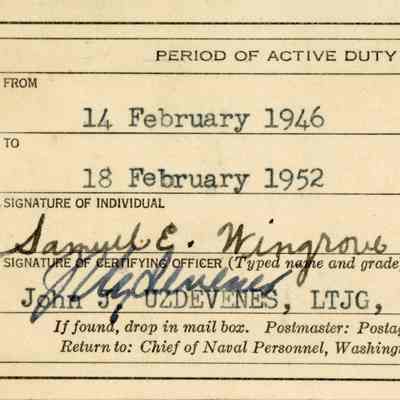 PERIOD OF ACTIVE DUTY
FROM
14 February 1946
TO
18 February 1952
SIGNATURE OF INDIVIDUAL
Samuel E. Wingrove
SIGNATURE OF CERTIFYING OFFICER (Typed name and grade)
John J. UZDEVENES, LTJG,
If found, drop in mail box. Postmaster: Posta
Return to: Chief of Naval Personnel, Washing